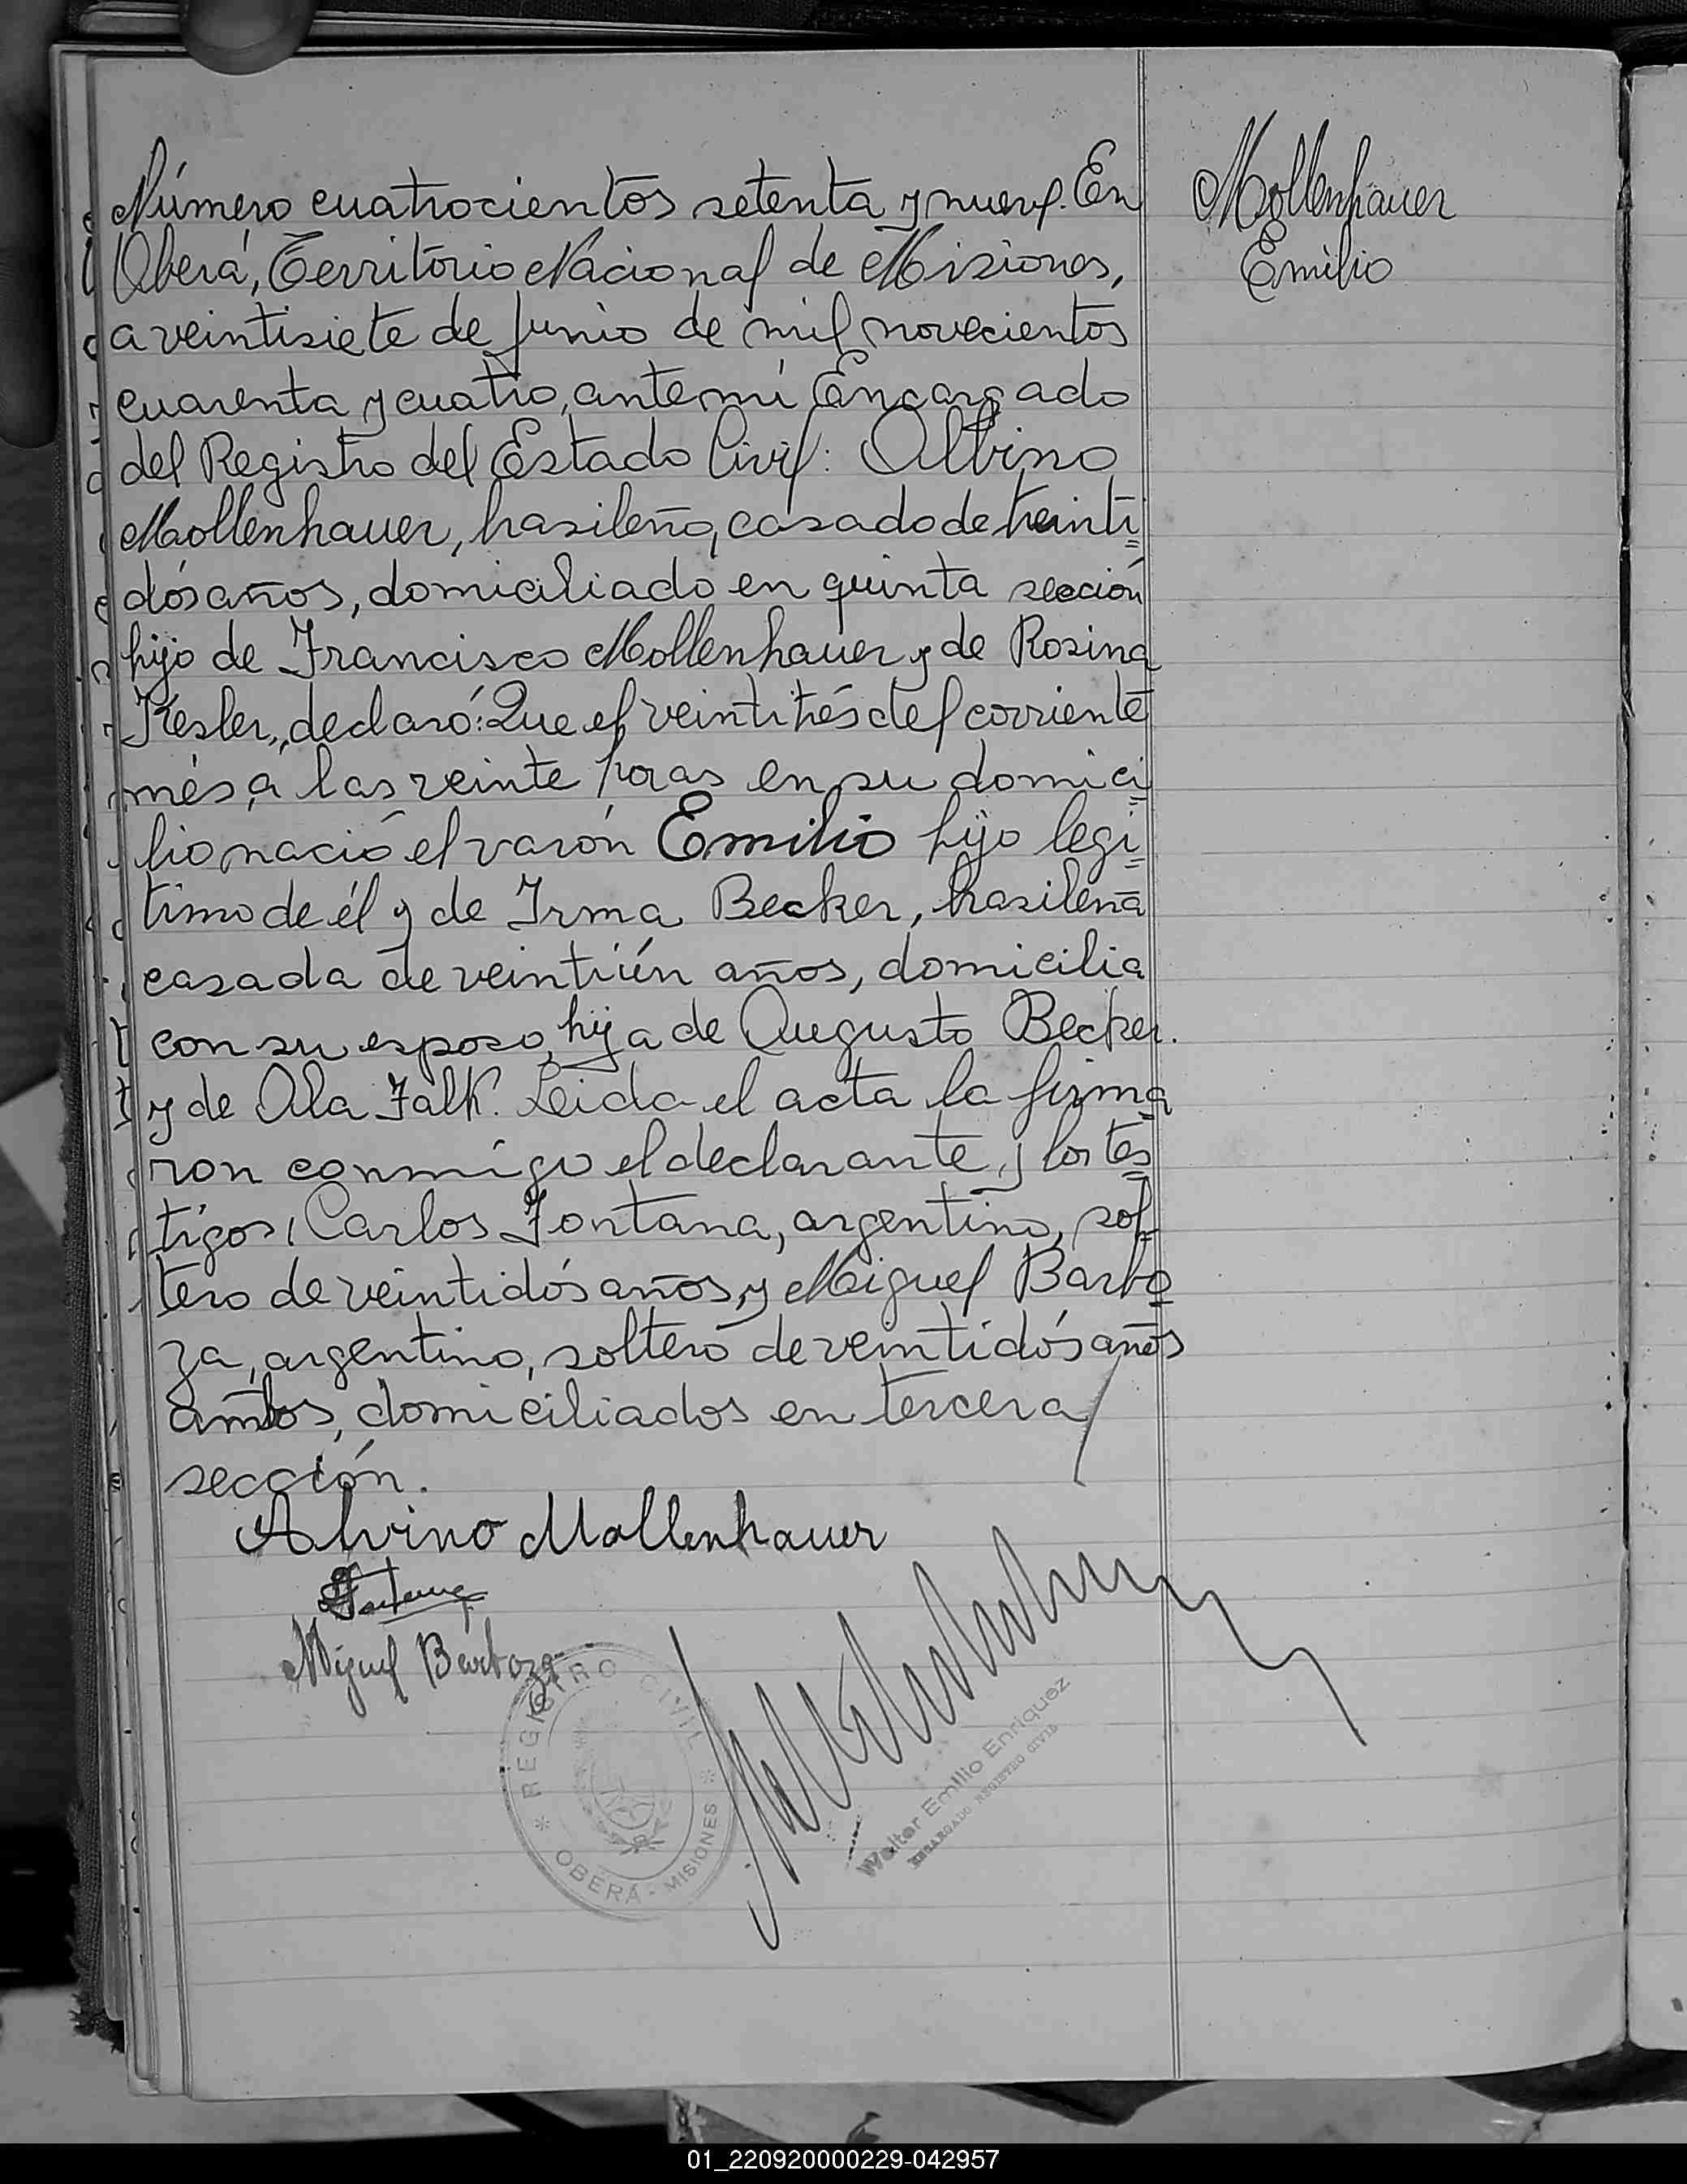 Número cuatrocientos setenta y nueve. En
Oberá, Territorio Nacional de Misiones,
a veintisiete de Junio de mil novecientos
cuarenta y cuatro, ante mí Encargado
del Registro del Estado Civil: Albino
Mollenhauer, brasileño, casado de treinti
dós años, domiciliado en quinta sección
hijo de Francisco Mollenhauer y de Rosina
Kesler, declaró: Que el veintitrés del corriente
més a las veinte horas en su domici
lio nació el varón Emilio hijo legi
timo de él y de Irma Becker, brasileña
casada de veintiún años, domicilia
con su esposo, hija de Augusto Becker.
y de Ala Falk. Leida el acta la firma
ron conmigo el declarante y los tes
tigos, Carlos Fontana, argentino, sol
tero de veintidós años, y Miguel Barbo
za, argentino, soltero de veintidós años
ambos, domiciliados en tercera
sección.
Mollenhauer
Emilio
Alvino Mollenhauer
Fontana
Miguel Barboza
REGISTRO CIVIL
OBERÁ - MISIONES
Walter Emilio Enriquez
ENCARGADO REGISTRO CIVIL
01_220920000229-042957